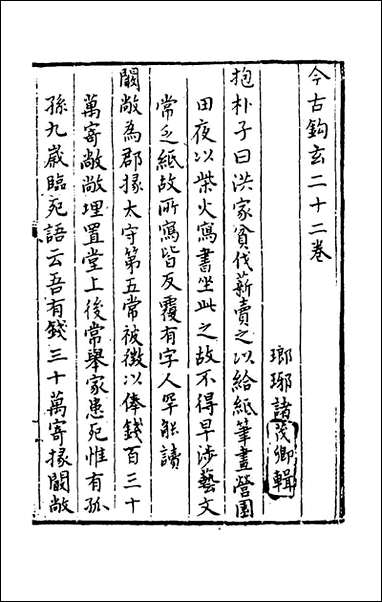 今古鈎玄二十二卷
瑯琊諸茂卿輯
抱朴子曰洪家貧伐薪賣之以給紙筆晝營園
田夜以柴火寫書坐此之故不得早涉藝文
常乏紙故所寫皆反覆有字人罕能讀
闞敞為郡掾太守第五常被徵以俸錢百三十
萬寄敞敞埋置堂上後常舉家患死惟有孤
孫九歲臨死語云吾有錢三十萬寄掾闞敞